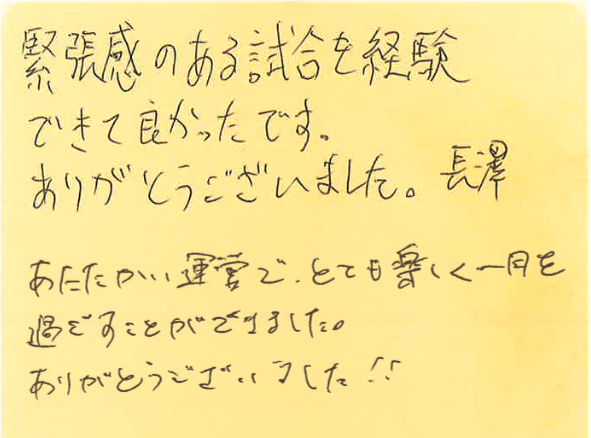 緊張感のある試合を経験
できて良かったです。
ありがとうございました。長澤
あたたかい運営で、とても楽しく一月を
過ごすことができました。
ありがとうございました!!